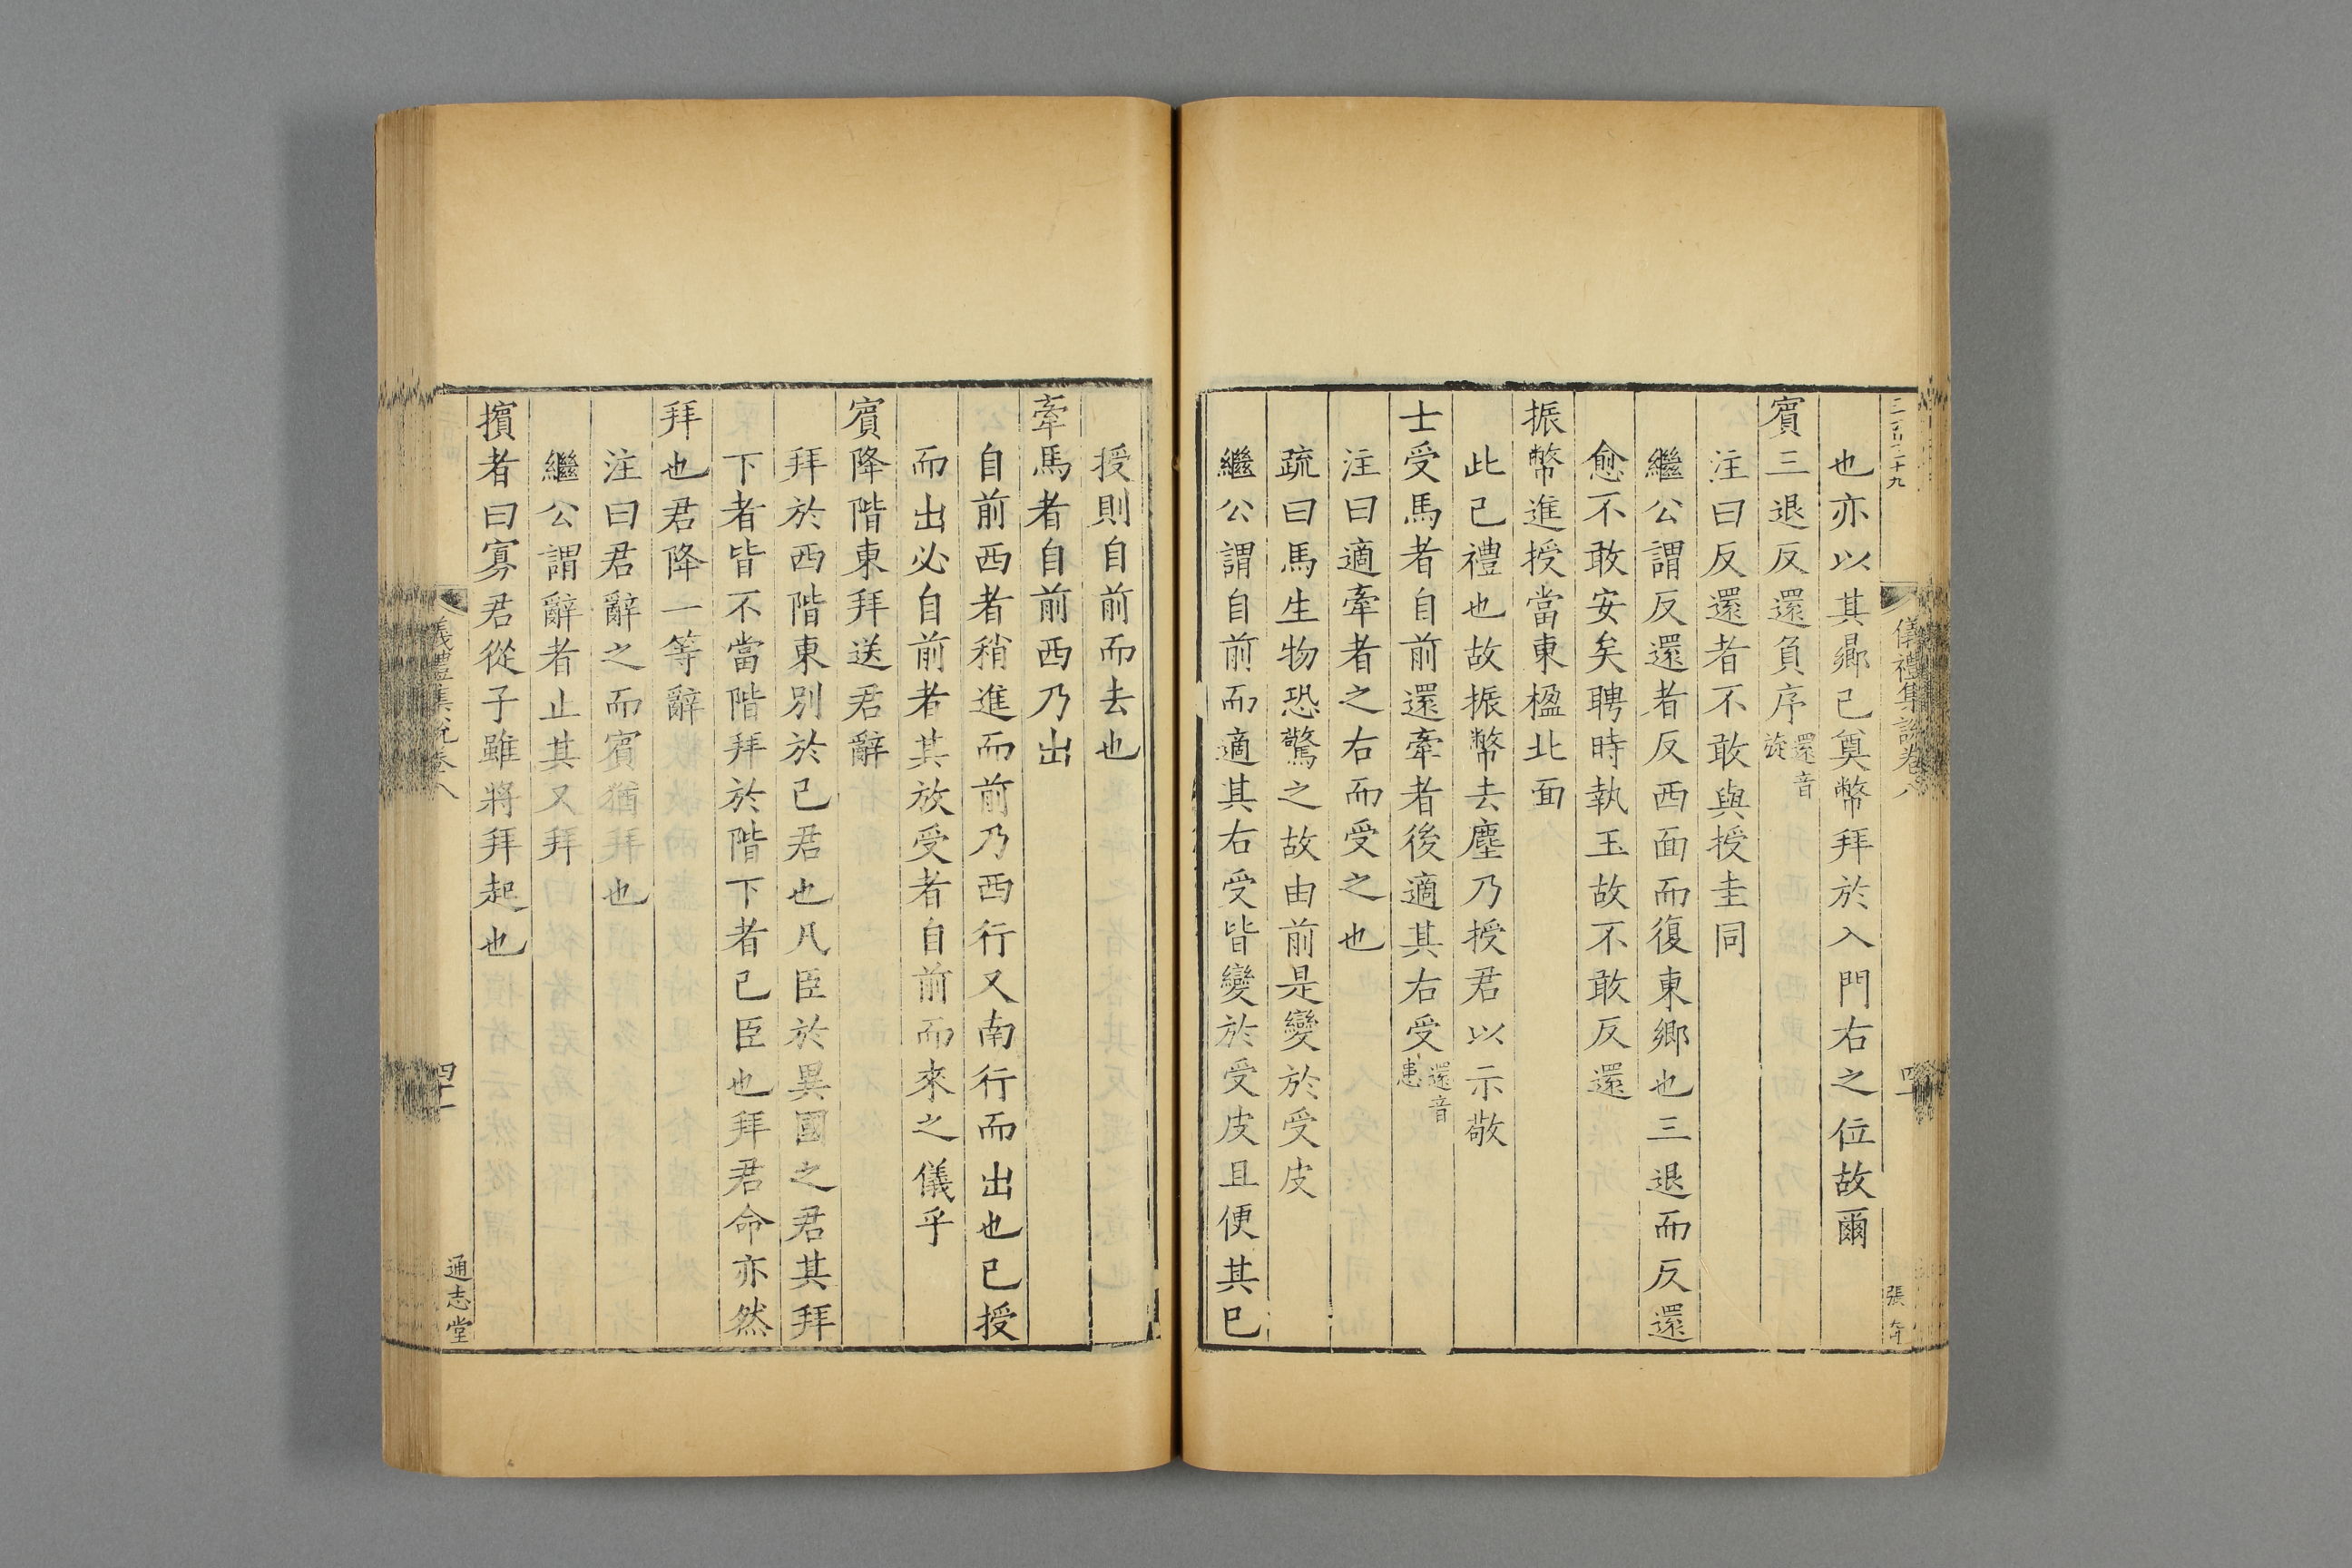 儀禮集說卷八
也亦以其鄉已奠幣拜於入門右之位故爾
賓三退反還負序還音旋
注曰反還者不敢與授圭同
繼公謂反還者反西面而復東鄉也三退而反還
愈不敢安矣聘時執玉故不敢反還
振幣進授當東楹北面
此已禮也故振幣去塵乃授君以示敬
士受馬者自前還牽者後適其右受還音患
注曰適牽者之右而受之也
疏曰馬生物恐驚之故由前是變於受皮
繼公謂自前而適其右受皆變於受皮且便其已
授則自前而去也
牽馬者自前西乃出
自前西者稍進而前乃西行又南行而出也已授
而出必自前者其放受者自前而來之儀乎
賓降階東拜送君辭
拜於西階東別於已君也凡臣於異國之君其拜
下者皆不當階拜於階下者已臣也拜君命亦然
拜也君降一等辭
注曰君辭之而賓猶拜也
繼公謂辭者止其又拜
擯者曰寡君從子雖將拜起也
儀禮集說卷八
四十一
通志堂